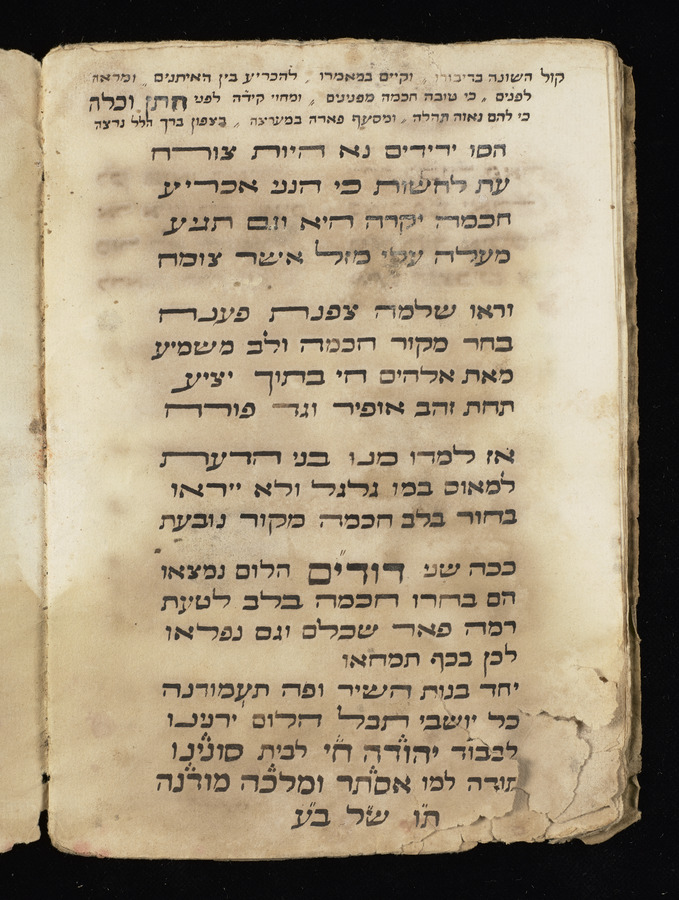 קול השונה בדיבורו ״ וקיים במאמרו ״ להכריע בין האיתנים ״ ומראה
לפנים ״ כי טובה חכמה מפנינים ״ ומחוי קידה לפני חתן וכלה
כי להם נאוה תהלה ״ ומסעף פארה במערצה ״ בצפון ברך הלל נרצה
הסו ידידים נא היות צורח
עת לחשות כי הנני אכריע
חכמה יקרה היא וגם תגיע
מעלה עלי מזל אשר צומח
וראו שלמה צפנת פענח
בחר מקור חכמה ולב משמיע
מאת אלהים חי בתוך יציע
תחת זהב אופיר וגד פורח
אז למדו מנו בני הדעת
למאוס במו גלגל ולא ייראו
בחור בלב חכמה מקור נובעת
ככה שני דודים הלום נמצאו
הם בחרו חכמה בלב לטעת
רמה פאר שכלם וגם נפלאו
לכן בכף תמחאו
יחד בנות השיר ופה תעמודנה
כל יושבי תבל הלום ירנינו
לכבוד יהודה חי לבית סונינו
תודה למו אסתר ומלכה מודנה
תו של בע